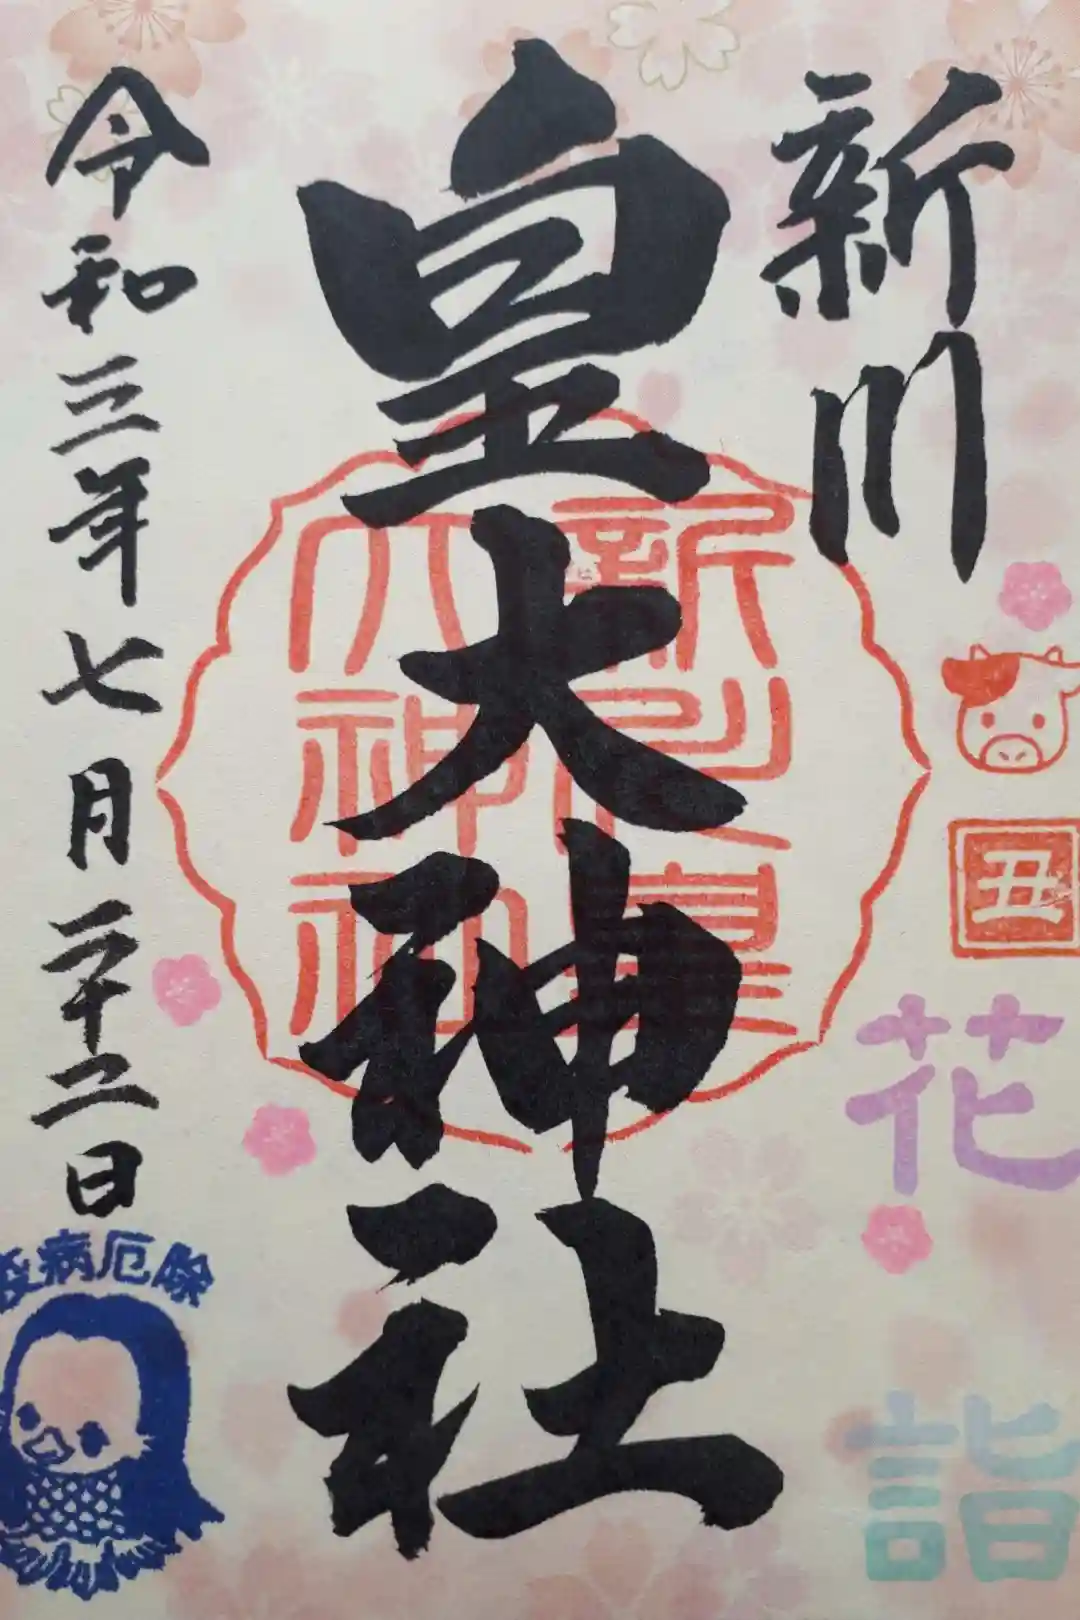 新川
皇大神社
令和三年七月二十二日
新川皇
大神社
丑
花詣
疫病厄除